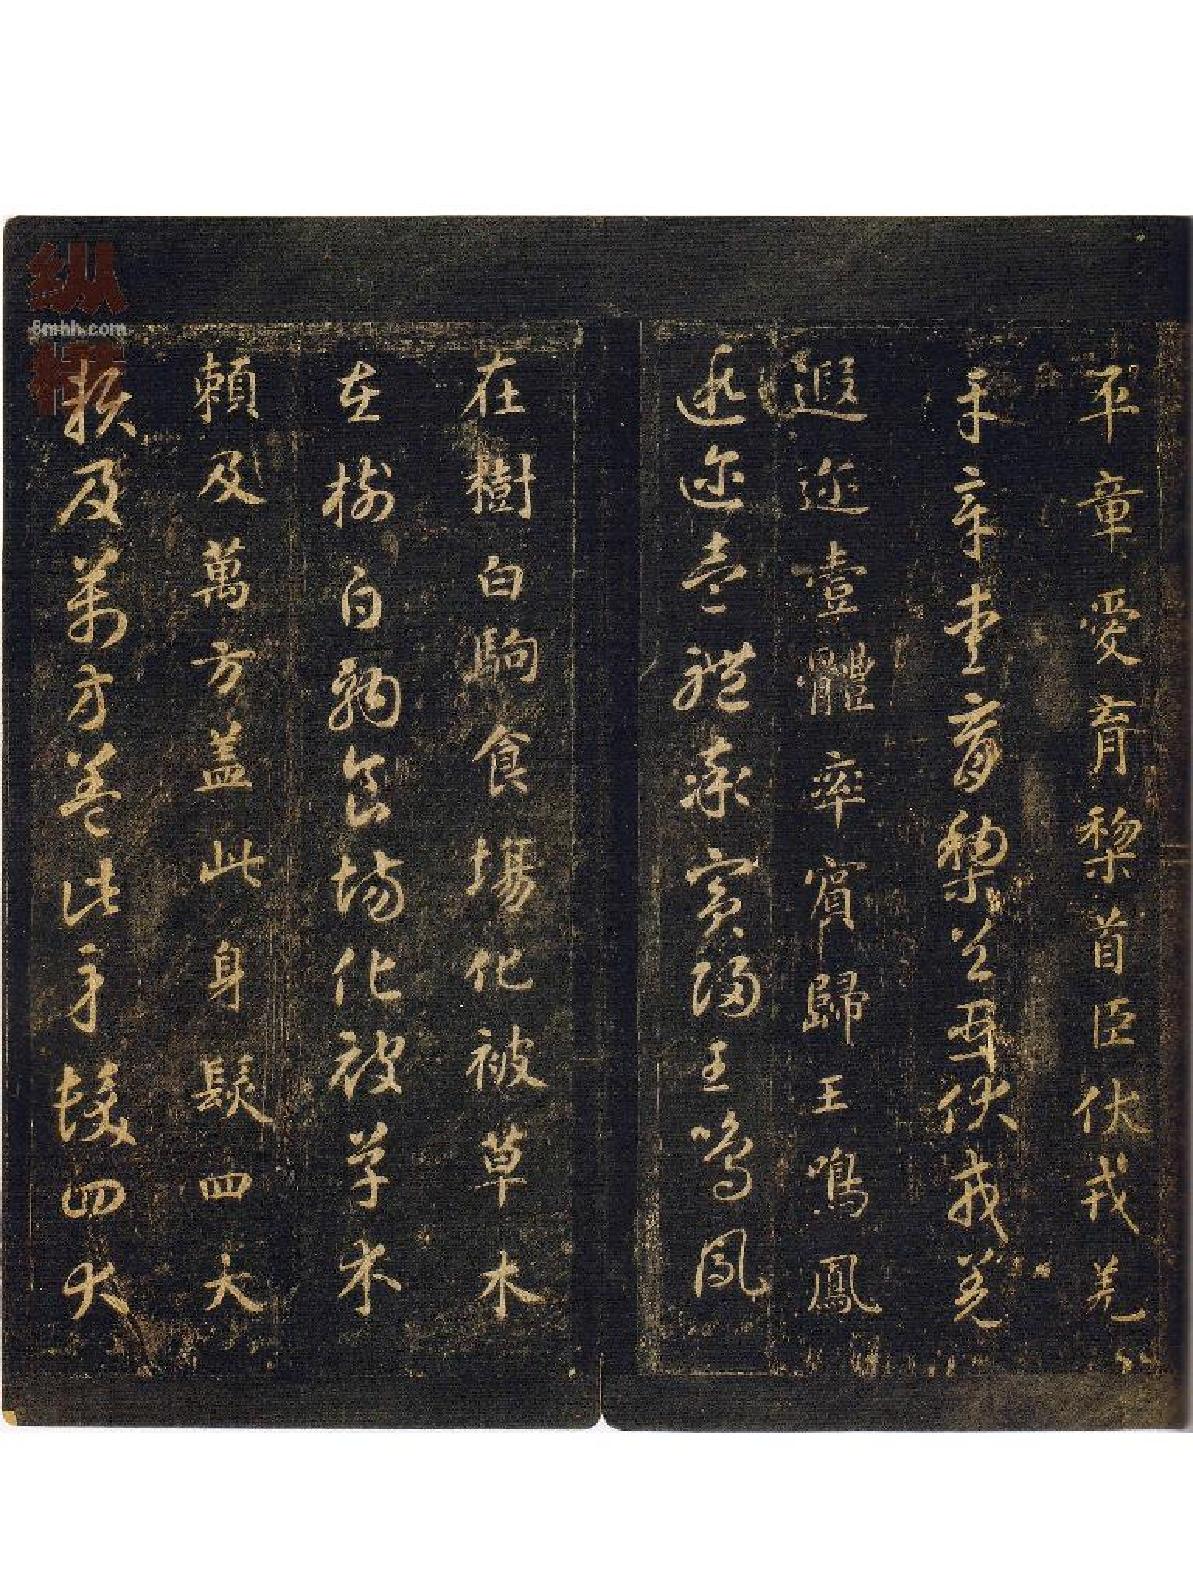 平章愛育黎首臣伏戎羌
平章愛育黎首臣伏戎羌
遐迩壹體率賓歸王鳴鳳
遐迩壹體率賓歸王鳴鳳
在樹白駒食場化被草木
在樹白駒食場化被草木
賴及萬方盖此身髮四大
賴及萬方盖此身髮四大
纵横
8mhh.com